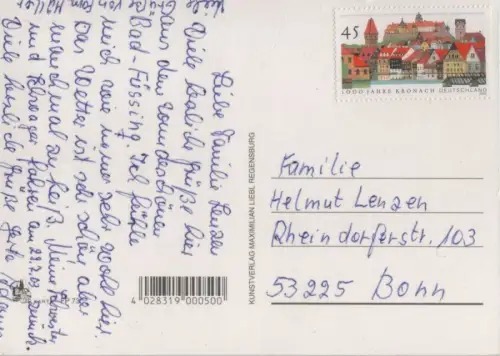 Liebe Familie Lenzen
Viele herzliche Grüße hier
aus dem wunderschönen
Bad-Füssing. Ich fühle
mich wie immer sehr wohl hier.
Das Wetter ist sehr schön aber
manchmal zu heiß. Meine Schwester
und Schwager fahren am 29.7.03 zurück.
Viele herzliche Grüße
45
1000 JAHRE KRONACH DEUTSCHLAND
KUNSTVERLAG MAXIMILIAN LIEBL REGENSBURG
Familie
Helmut Lenzen
Rheindorferstr. 103
53225 Bonn
4 028319 000500